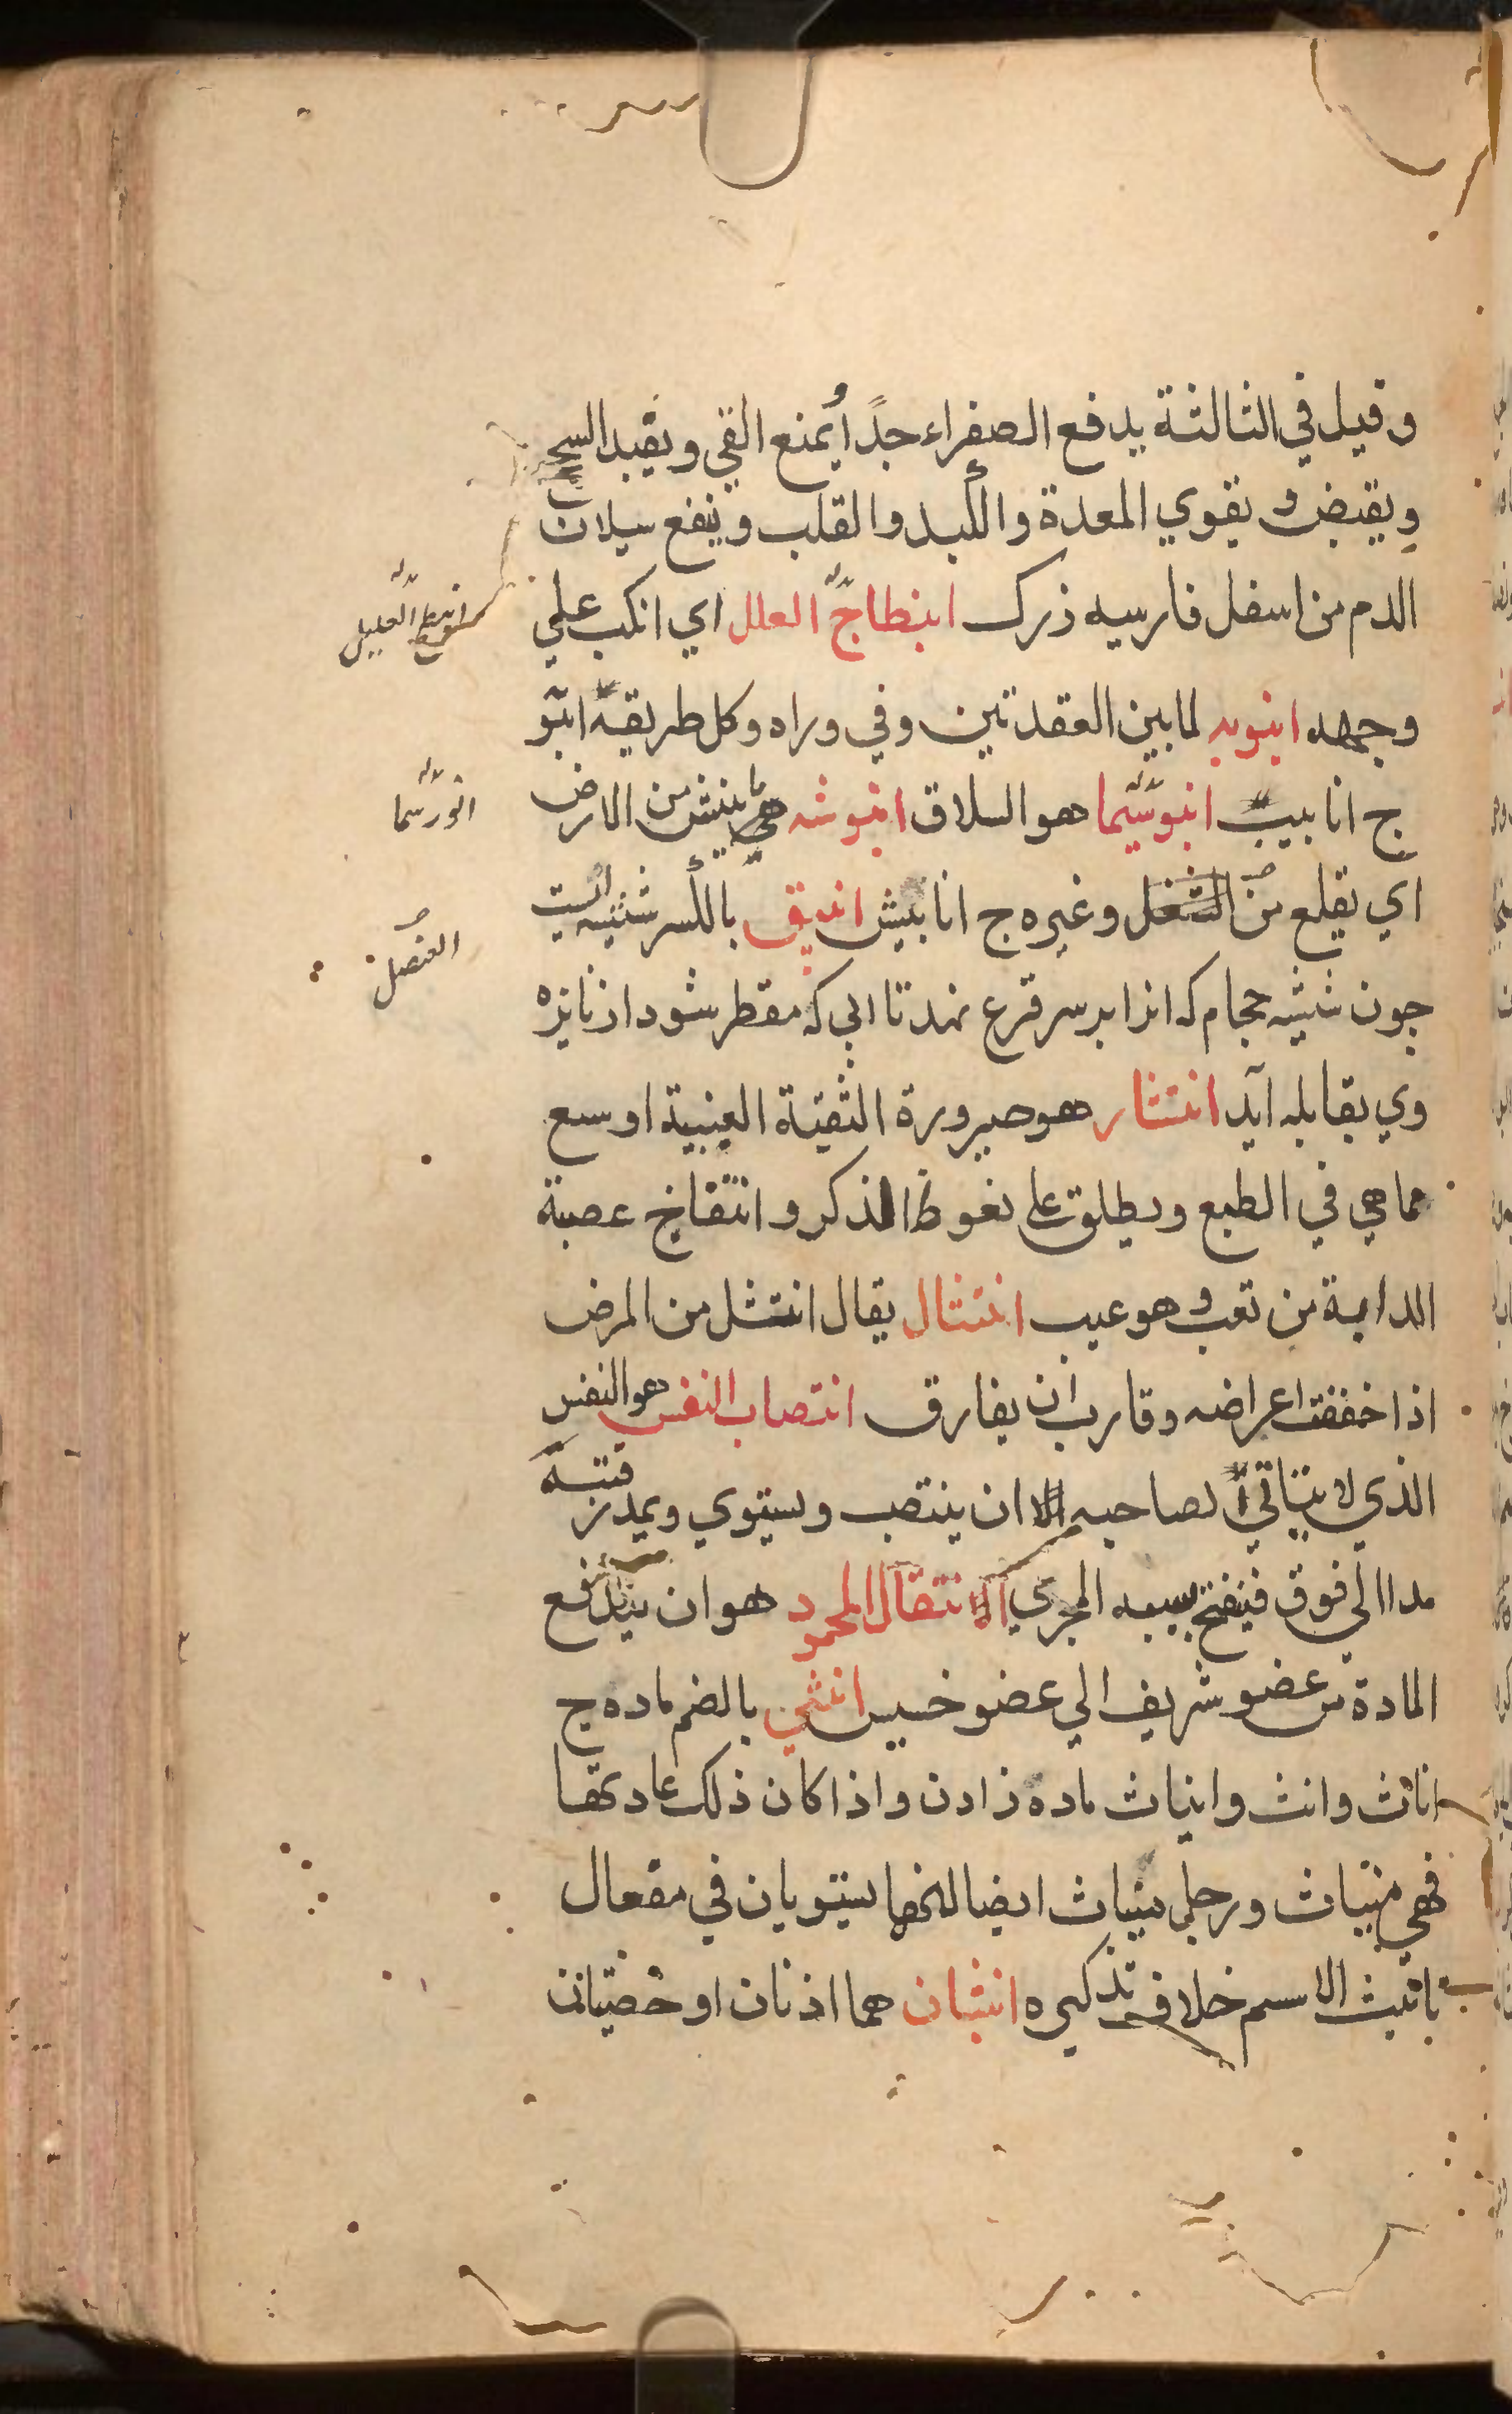 وقيل في الثالثة يدفع الصفراء جدًا يمنع القي ويفيد السحج
ويقبض و يقوي المعدة والكبد والقلب وينفع سيلان
الدم من اسفل فارسيه زرك انبطاح العلل اي انكب علي
انبطح العليل
وجهه انبوبه لما بين العقدتين وفي وراه وكل طريقة انبو
ج انابيب انبوشيما هو السلاق انبوشه هي ما ينبش من الارض
اي يقلع من وغيره ج انابيش انبيق بالكسر شيشه ايست
العنصل
جون شيشه حجام كه انرا بر سر قرع نهند تا ابي كه مقطر شود از نايزه
وي بقابله آيد انتشار هو صيرورة الثقبة العنبية اوسع
مما هي في الطبع ويطلق علي نغوظ الذكر وانتفاخ عصبة
الدابة من تعب و هو عيب انتثال يقال انتثل من المرض
اذا خففت اعراضه وقارب ان يفارق انتصاب النفس هو النفس
الذي لا يتاتي لصاحبه الا ان ينتصب ويستوي ويمد رقبته
مدا الي فوق فينفتح بسببه المجري الانتقال المحمود هو ان يندفع
المادة من عضو شريف الي عضو خسيس انثي بالضم ماده ج
اناث وانث وايناث ماده زادن واذا كان ذلك عادتها
فهي ميناث ورجل ميناث ايضا لانهما يستويان في مفعال
تانيث الاسم خلاف تذكيره انثيان هما اذنان او خصيتان